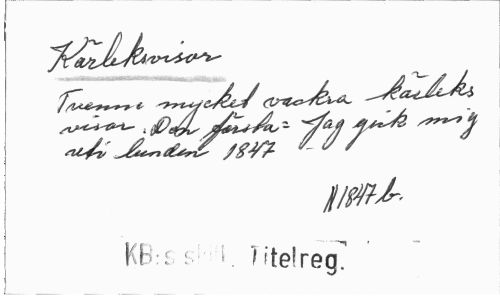 Kärleksvisor
Tvenne mycket vackra kärleks
visor. Den första = Jag gick mig
uti lunden 1847
N 1847 b.
KB:s Titelreg.